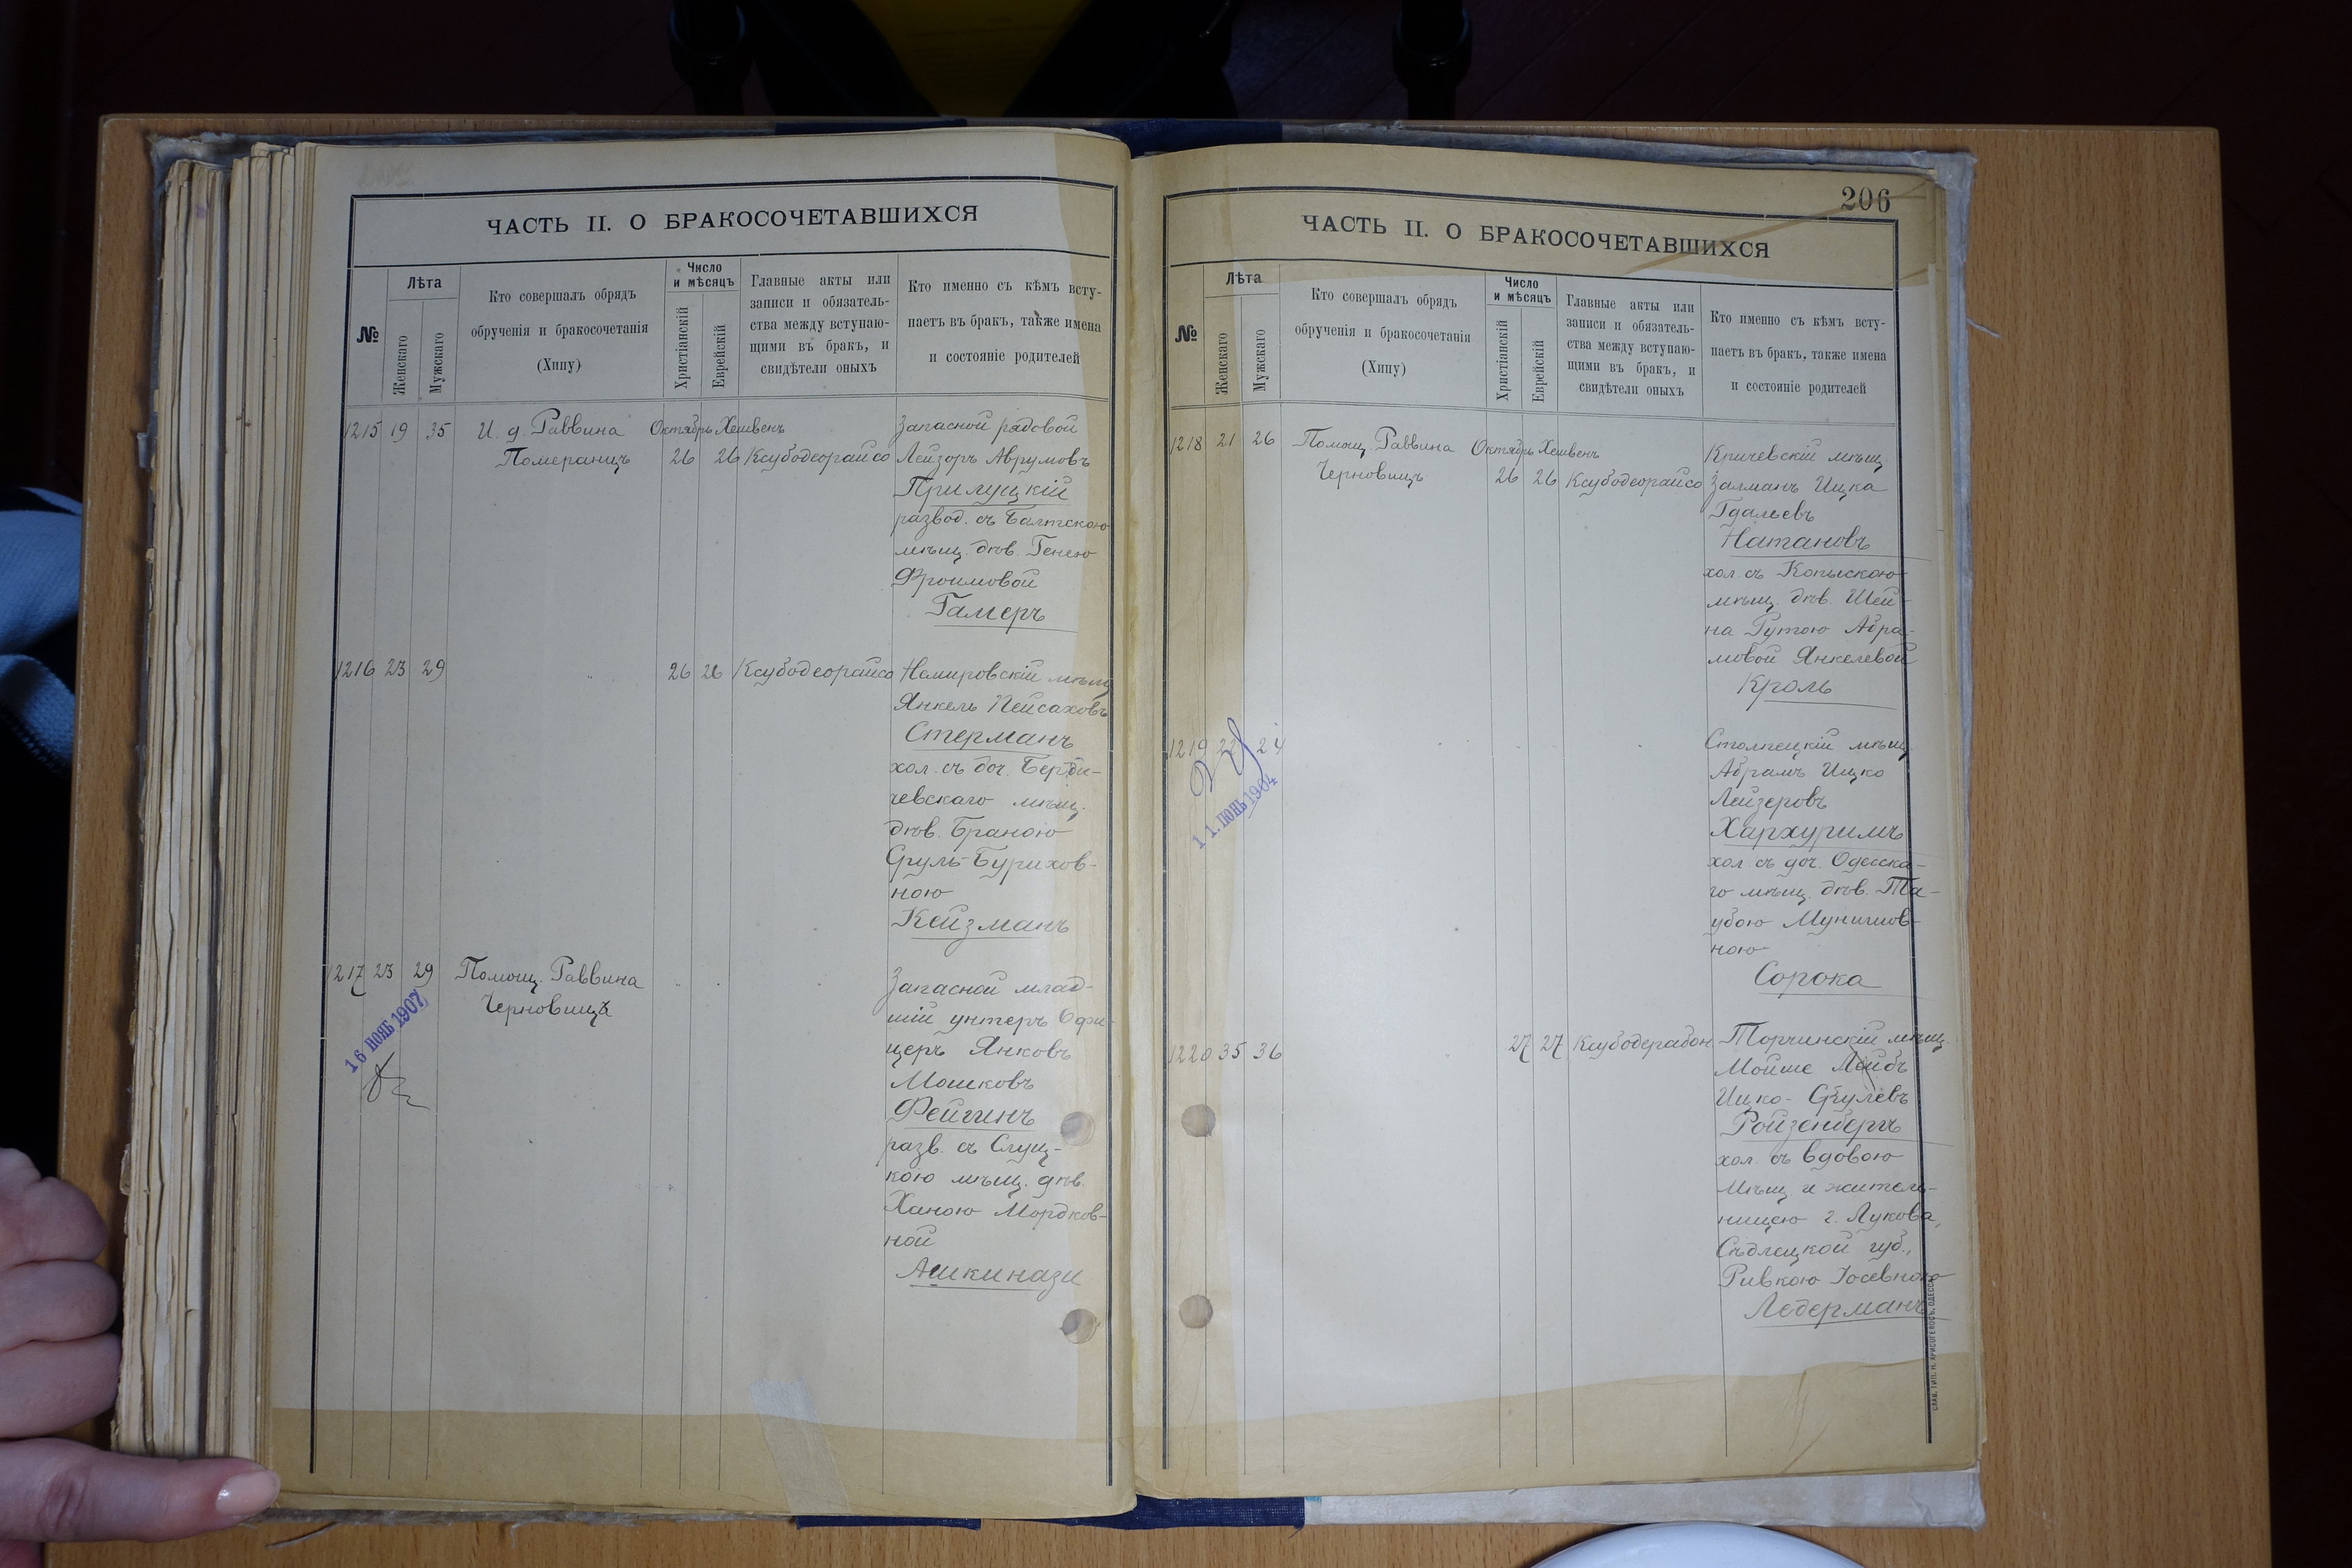 ЧАСТЬ II. О БРАКОСОЧЕТАВШИХСЯ
№
Лѣта
Женскаго
Мужскаго
Кто совершалъ обрядъ
обрученія и бракосочетанія
(Хипу)
Число
и мѣсяцъ
Христіанскій
Еврейскій
Главные акты или
записи и обязатель-
ства между вступаю-
щими въ бракъ, и
свидѣтели оныхъ
Кто именно съ кѣмъ всту-
паетъ въ бракъ, также имена
и состояніе родителей
1215 19 35 И. д. Раввина Октябрь Хешвенъ Запасной рядовой
Померанцъ 26 26 Ксубодеорайсо Лейзоръ Аврумовъ
Прилуцкій
развод. съ Балтскою
мѣщ. дѣв. Генею
Фроимовой
Гамеръ
1216 23 29 " 26 26 Ксубодеорайсо Немировскій мѣщ.
Янкель Пейсаховъ
Стерманъ
хол. съ доч. Берди-
чевскаго мѣщ.
дѣв. Браною
Сруль-Бурихов-
ною
Кейзманъ
1217 23 29 Помощ. Раввина " " Запасной млад-
Черновицъ шій унтеръ Офи-
церъ Янковъ
Мошковъ
Фейгинъ
разв. съ Слуц-
кою мѣщ. дѣв.
Ханою Мордков-
ной
Ашкинази
16 НОЯБ 1907
206
ЧАСТЬ II. О БРАКОСОЧЕТАВШИХСЯ
№
Лѣта
Женскаго
Мужскаго
Кто совершалъ обрядъ
обрученія и бракосочетанія
(Хипу)
Число
и мѣсяцъ
Христіанскій
Еврейскій
Главные акты или
записи и обязатель-
ства между вступаю-
щими въ бракъ, и
свидѣтели оныхъ
Кто именно съ кѣмъ всту-
паетъ въ бракъ, также имена
и состояніе родителей
1218 21 26 Помощ. Раввина Октябрь Хешвенъ Кричевскій мѣщ.
Черновицъ 26 26 Ксубодеорайсо Залманъ Ицка
Гдальевъ
Натановъ
хол. съ Копыскою
мѣщ. дѣв. Шей-
на Гутою Абра-
мовой Янкелевой
Кроль
1219 22 24 Столпецкій мѣщ.
Абрамъ Ицко
Лейзеровъ
Хархуримъ
хол. съ доч. Одесска-
го мѣщ. дѣв. Та-
убою Мунишов-
ною
Сорока
11. ІЮНЬ 1904
1220 35 36 27 27 Ксубодерабон Торчинскій мѣщ.
Мойше Лейбъ
Ицко-Срулевъ
Ройзенбергъ
хол. съ вдовою
мѣщ. и житель-
ницею г. Лукова,
Сѣдлецкой губ.,
Ривкою Іосевною
Ледерманъ